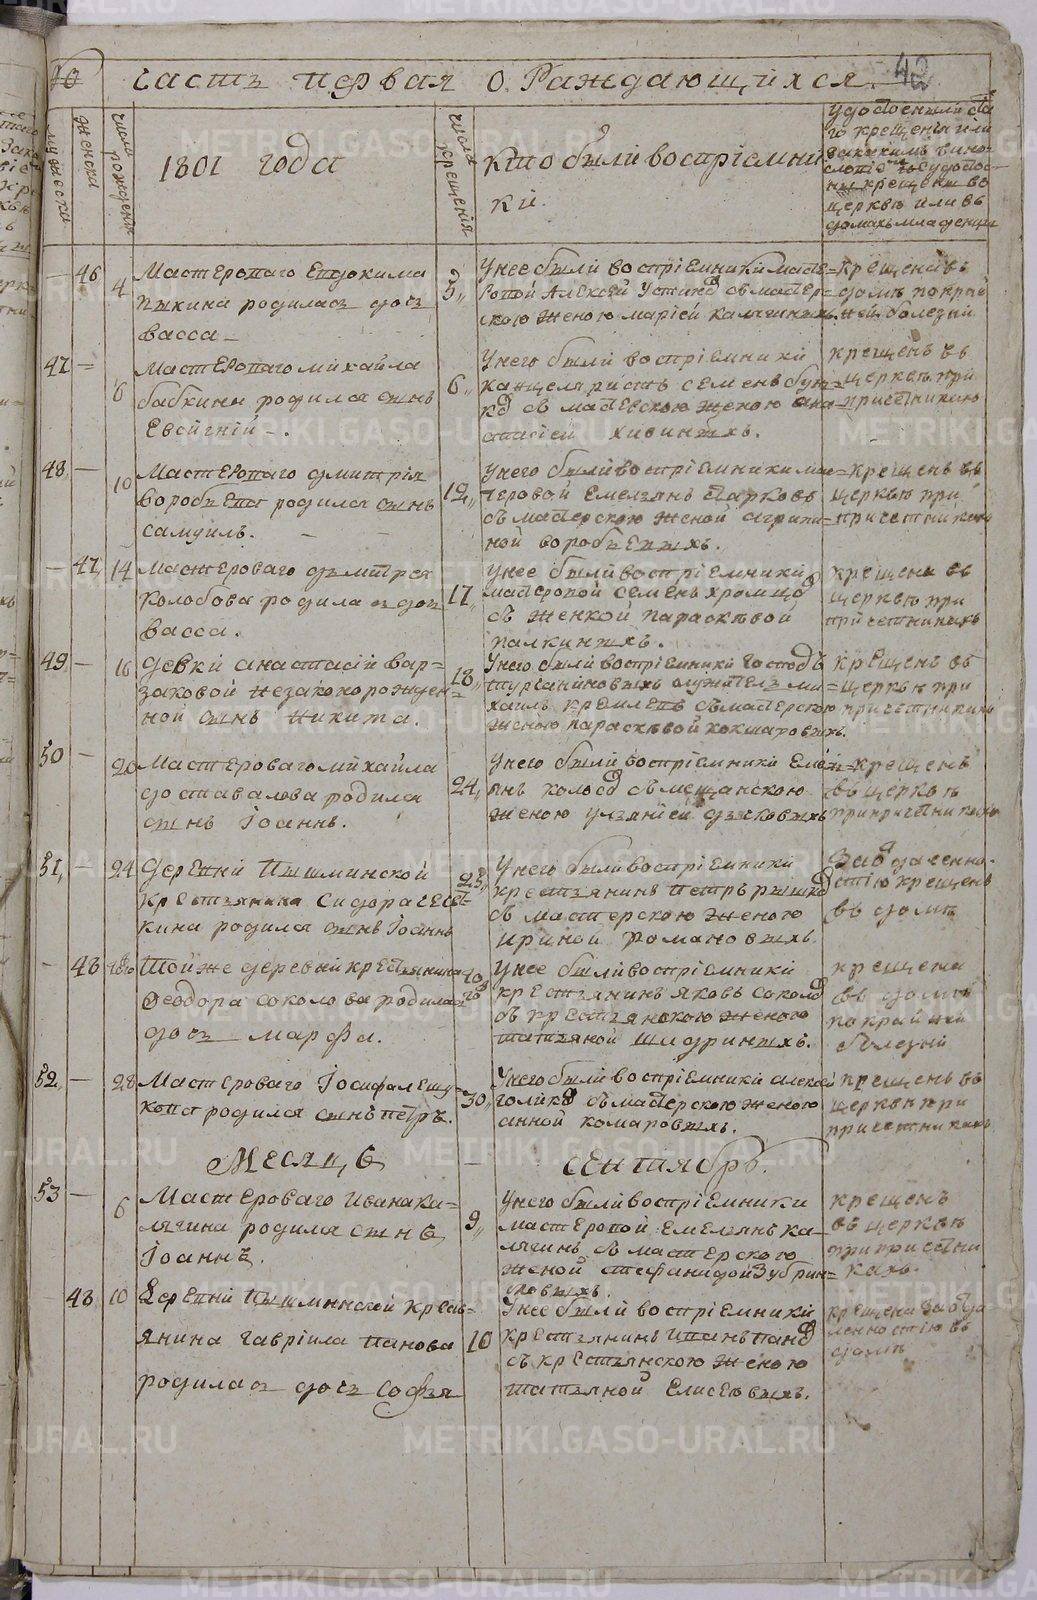 Часть первая о Раждающихся.
42
мужеска
женска
число рожденія
1801 года
число крещенія
Кто были воспріемни
ки.
Удостоены ли св.
го крещенія или
церкви или въ
домахъ младенцы
46
4
Мастероваго Евдокима
Пькина родилась дочь
Васса
5
У нее были воспріемники масте=
ровой Алексей Устин съ мастерс=
скою женою Маріей Калягиныхъ.
Крещена въ
доме по край
ней болезни
47
6
Мастероваго Михайла
Бабкина родился сынъ
Евсигній.
6
У него были воспріемники
канцеляристъ Семенъ Бун=
съ мастерскою женою Ана=
стасіей Хивиныхъ.
крещенъ въ
церкве при
причетникахъ
48
10
Мастероваго Дмитрія
Воробьева родился сынъ
Самуилъ.
12
У него были воспріемники мас=
теровой Емельянъ Марковъ
съ мастерскою женой Агрипи=
ной Воробьевыхъ.
крещенъ въ
церквы при
причетникахъ
47
14
Мастероваго Дьмитрея
Колобова родилась дочь
Васса.
17
У нее были воспріемники
мастеровой Семенъ Хромцов
съ женкой Параскевой
Палкиныхъ.
крещена въ
церкве при
причетникахъ
49
16
Девки Анастасіи Вар=
заковой незаконорожден=
ной сынъ Никита.
18
У него были воспріемники Господъ
Турчаниновыхъ служитель Ми=
хаилъ Кремлевъ съ мастерскою
женою Параскевой Кокшаровыхъ.
крещенъ въ
церкве при
причетникахъ
50
20
Мастероваго Михайла
Доставалова родился
сынъ Іоаннъ.
24
У него были воспріемники Емель=
янъ Колосов съ мещанскою
женою Ульяніей Дьяковыхъ
крещенъ
въ церкве
при причетникахъ
51
24
Деревни Пышминской
крестьянина Сидора Сесет=
кина родился сынъ Іоаннъ
25
У него были воспріемники
крестьянинъ Петръ Рышков
съ мастерскою женою
Ириной Романовыхъ.
За отдаленно=
стію крещенъ
въ доме
48
Той же деревни крестьянина
Феодора Соколова родилась
дочь Марфа.
У нее были воспріемники
крестьянинъ Яковъ Соколов
съ крестьянскою женою
Татьяной Шадриныхъ.
крещена
въ доме
по крайней
болезни
52
28
Мастероваго Іосифа Лещу=
кова родился сынъ Петръ.
30
У него были воспріемники Алексей
Голиков съ мастерскою женою
Анной Комаровыхъ.
крещенъ въ
церкве при
причетникахъ
Месяцъ Сентябрь.
53
6
Мастероваго Ивана Ка=
лягина родился сынъ
Іоаннъ.
9
У него были воспріемники
мастеровой Емельянъ Ка=
лягинъ съ мастерскою
женой Стефанидой Зубрин=
ковыхъ.
крещенъ
въ церкве
при причетни
кахъ.
48
10
Деревни Пышминской крест=
янина Гавріила Панова
родилась дочь Софья
10
У нее были воспріемники
крестьянинъ Иванъ Панов
съ крестьянскою женою
Татьяной Елисеевыхъ.
крещена за отда
ленностію въ
доме
METRIKI.GASO-URAL.RU